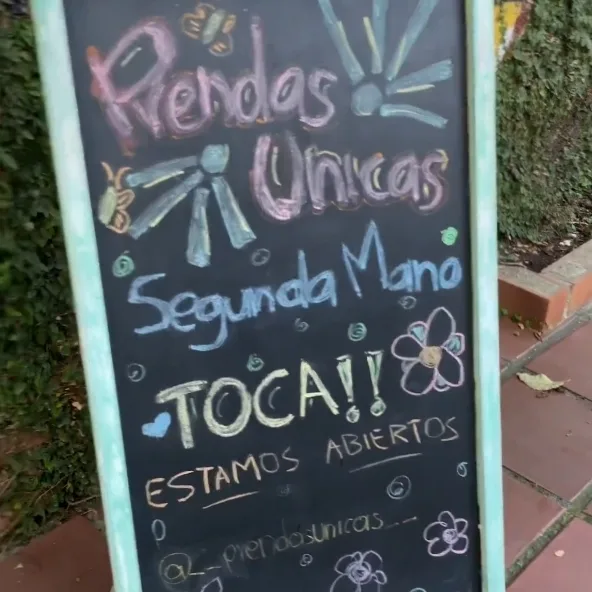 Prendas
Unicas
Segunda Mano
TOCA!!
ESTAMOS ABIERTOS
@__prendasunicas__